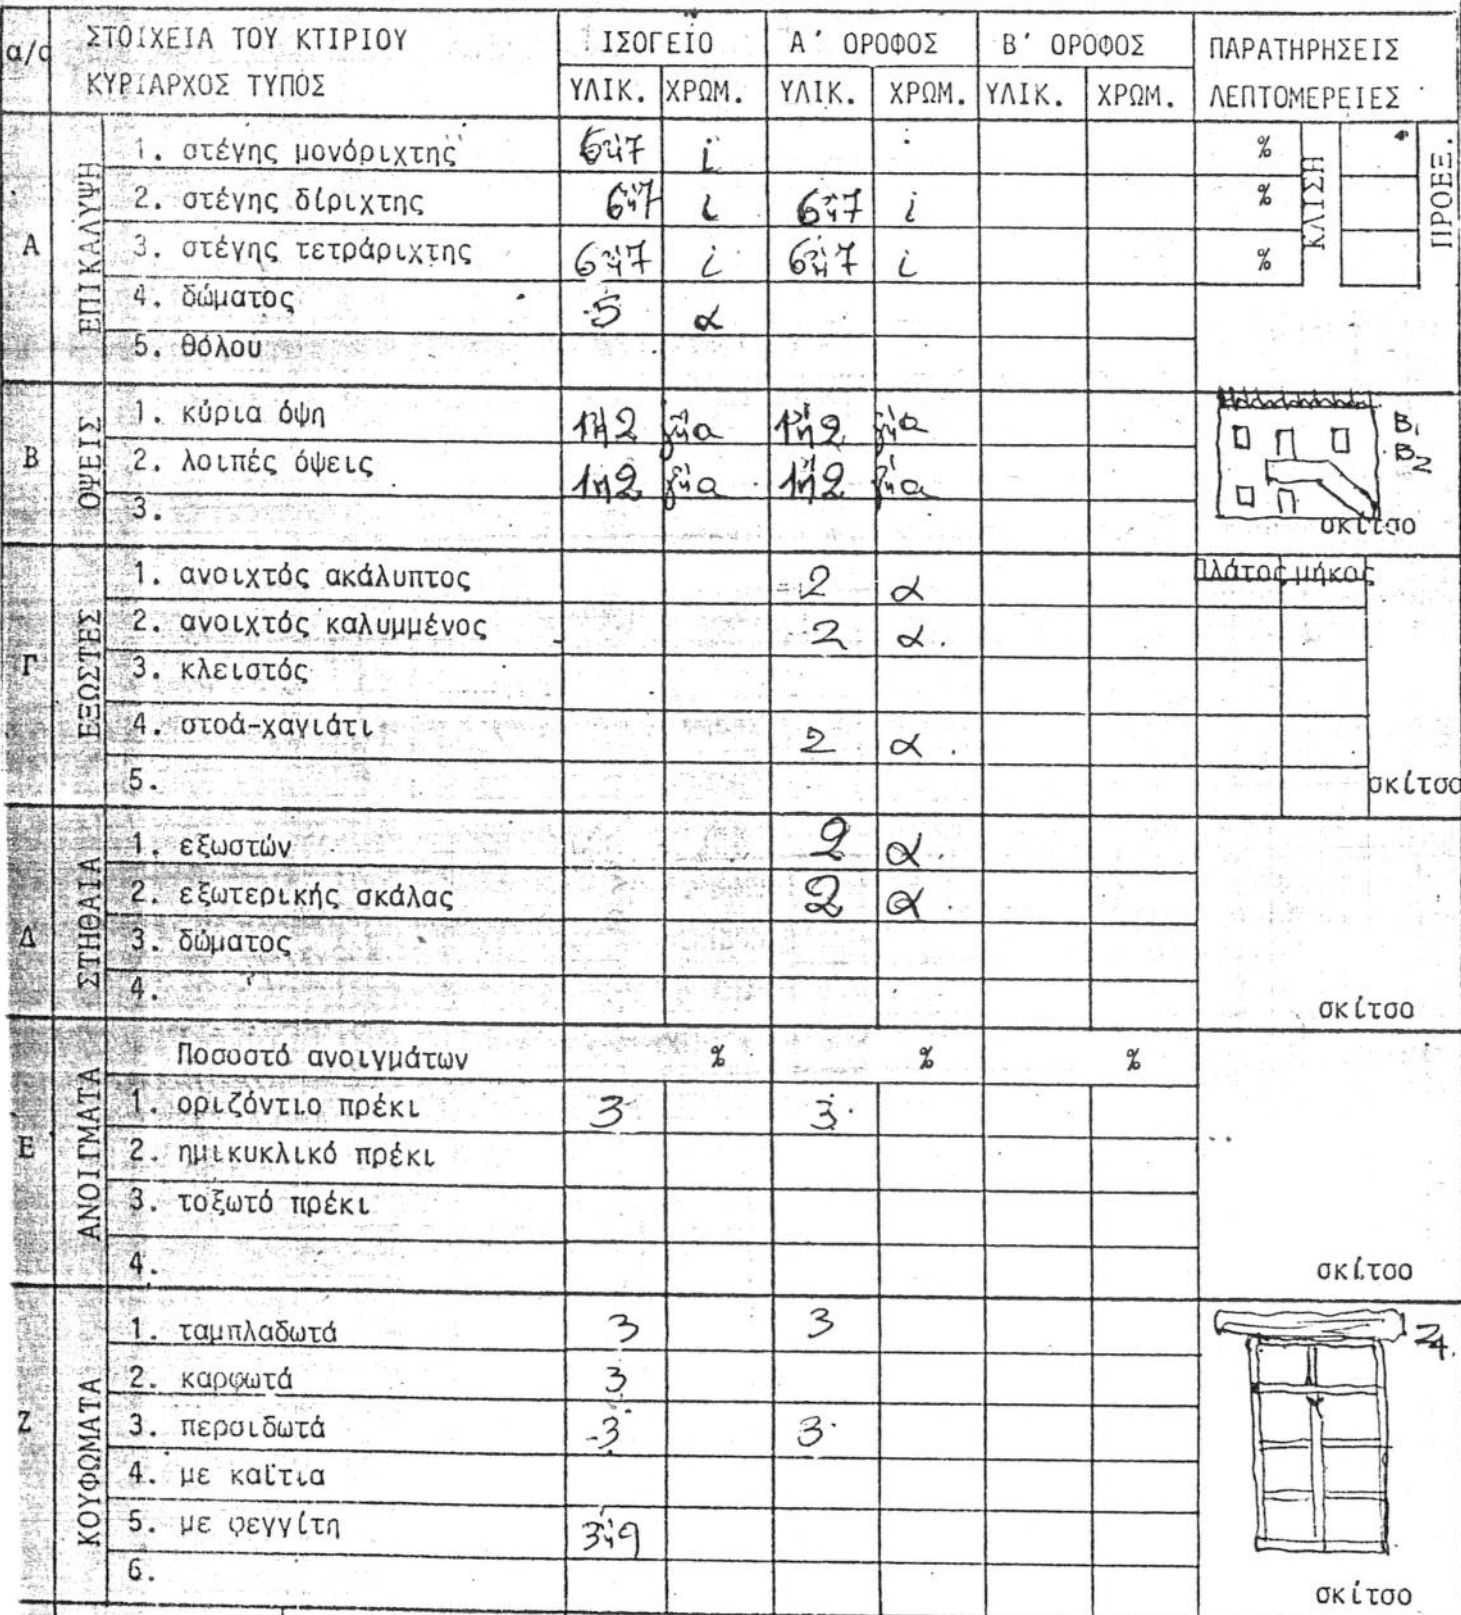 α/α ΣΤΟΙΧΕΙΑ ΤΟΥ ΚΤΙΡΙΟΥ ΙΣΟΓΕΙΟ Α' ΟΡΟΦΟΣ Β' ΟΡΟΦΟΣ ΠΑΡΑΤΗΡΗΣΕΙΣ
ΚΥΡΙΑΡΧΟΣ ΤΥΠΟΣ ΥΛΙΚ. ΧΡΩΜ. ΥΛΙΚ. ΧΡΩΜ. ΥΛΙΚ. ΧΡΩΜ. ΛΕΠΤΟΜΕΡΕΙΕΣ
Α ΕΠΙΚΑΛΥΨΗ
1. στέγης μονόριχτης 6ή7 i % ΚΛΙΣΗ ΠΡΟΕΞ.
2. στέγης δίριχτης 6ή7 i 6ή7 i %
3. στέγης τετράριχτης 6ή7 i 6ή7 i %
4. δώματος 5 α
5. θόλου
Β ΟΨΕΙΣ
1. κύρια όψη 1ή2 γήα 1ή2 γήα Β1
2. λοιπές όψεις 1ή2 γήα 1ή2 γήα Β2
3. σκίτσο
Γ ΕΞΩΣΤΕΣ
1. ανοιχτός ακάλυπτος 2 α Πλάτος μήκος
2. ανοιχτός καλυμμένος 2 α.
3. κλειστός
4. στοά-χαγιάτι 2 α.
5. σκίτσο
Δ ΣΤΗΘΑΙΑ
1. εξωστών 2 α.
2. εξωτερικής σκάλας 2 α.
3. δώματος
4. σκίτσο
Ε ΑΝΟΙΓΜΑΤΑ
Ποσοστό ανοιγμάτων % % %
1. οριζόντιο πρέκι 3 3
2. ημικυκλικό πρέκι
3. τοξωτό πρέκι
4. σκίτσο
Ζ ΚΟΥΦΩΜΑΤΑ
1. ταμπλαδωτά 3 3 Ζ4.
2. καρφωτά 3
3. περσιδωτά 3 3
4. με καΐτια
5. με φεγγίτη 3ή9
6. σκίτσο